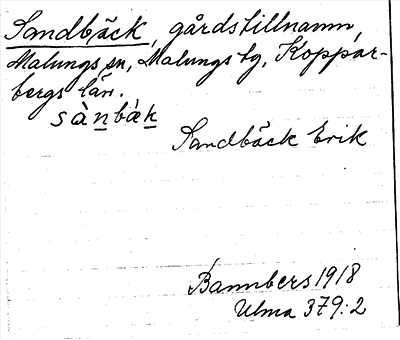 Sandbäck, gårdstillnamn,
Malungs sn, Malungs tg, Koppar-
bergs län.
sànbäk
Sandbäck Erik
Bannbers 1918
Ulma 379:2